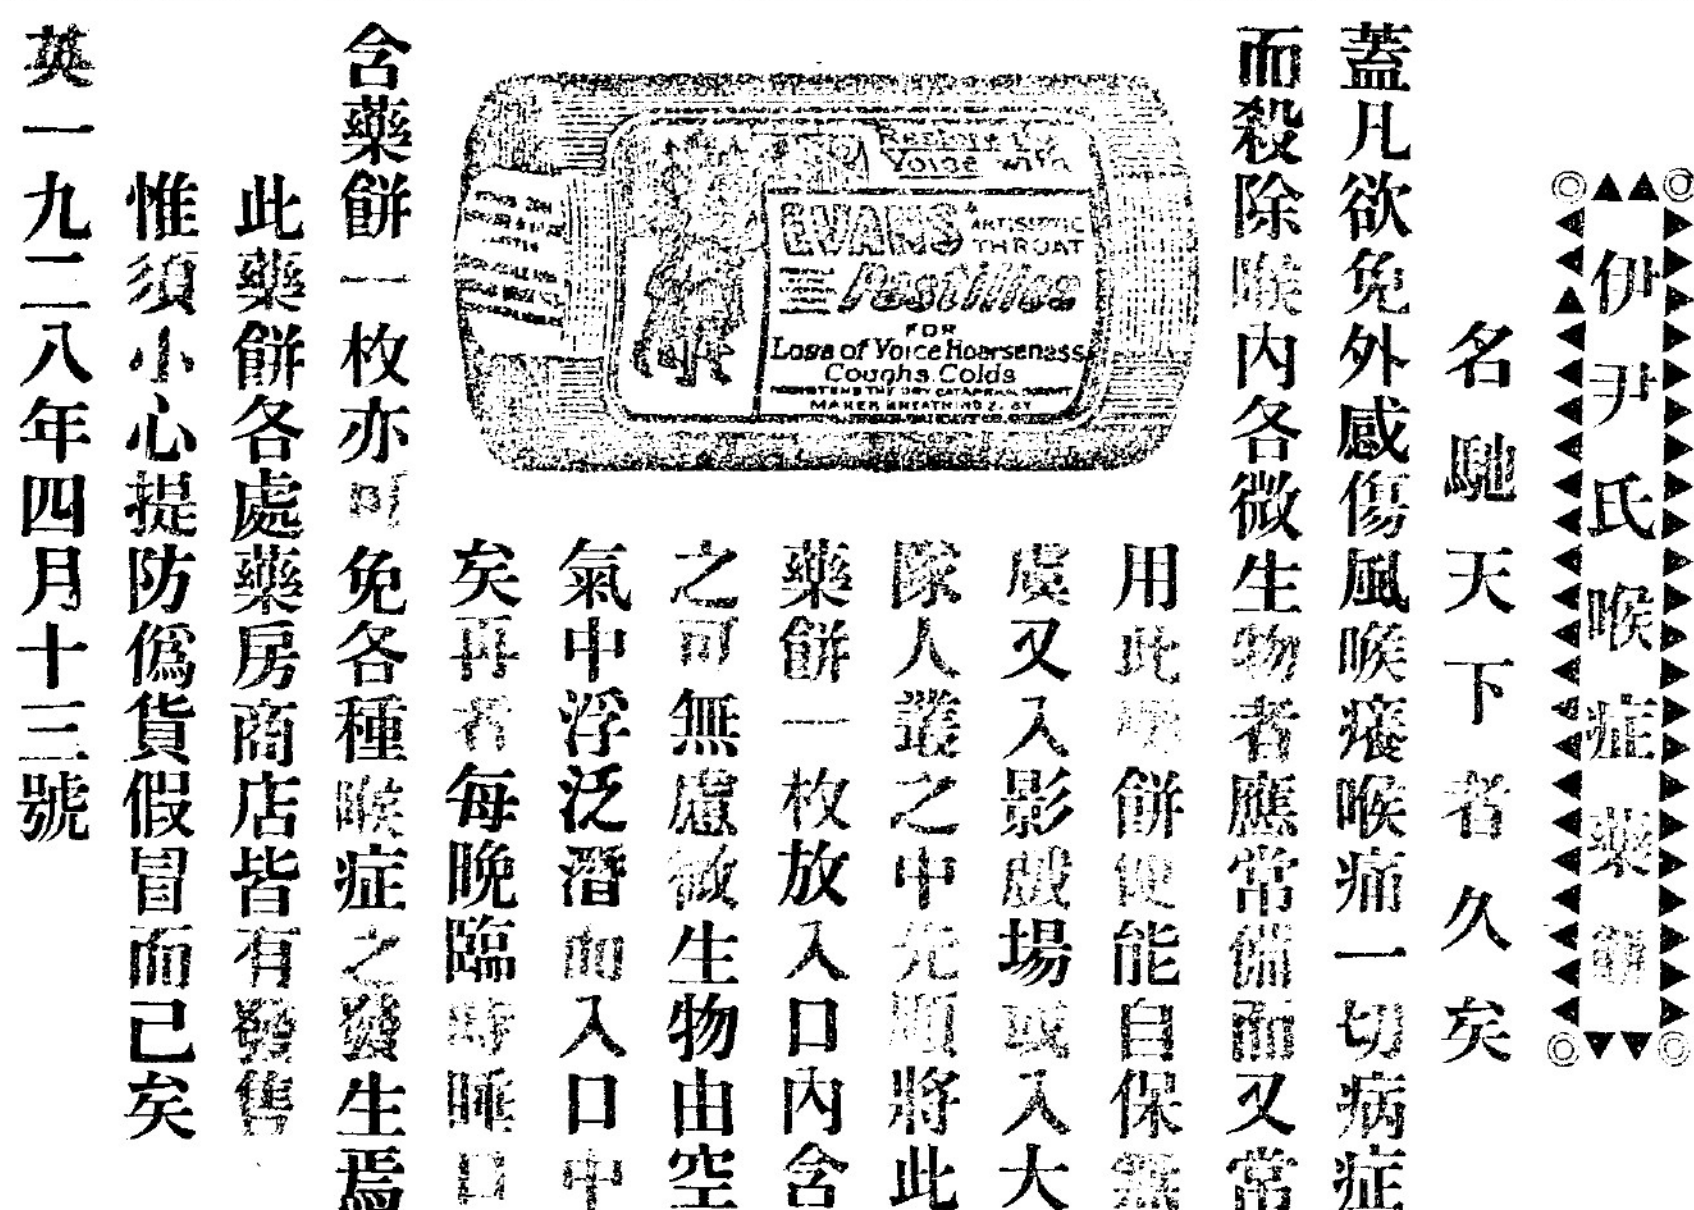 伊尹氏喉症藥餅
名馳天下者久矣
蓋凡欲免外感傷風喉癢喉痛一切病症
而殺除喉內各微生物者應常備而又常
用此喉餅便能自保無
虞又入影戲場或入大
隊人叢之中先須將此
藥餅一枚放入口內含
之可無慮微生物由空
氣中浮泛潛而入口中
矣再者每晚臨時睡口
含藥餅一枚亦可免各種喉症之發生焉
此藥餅各處藥房商店皆有發售
惟須小心提防偽貨假冒而已矣
英一九二八年四月十三號
Voice with
EVANS
ANTISEPTIC
THROAT
Pastilles
FOR
Loss of Voice Hoarseness
Coughs. Colds